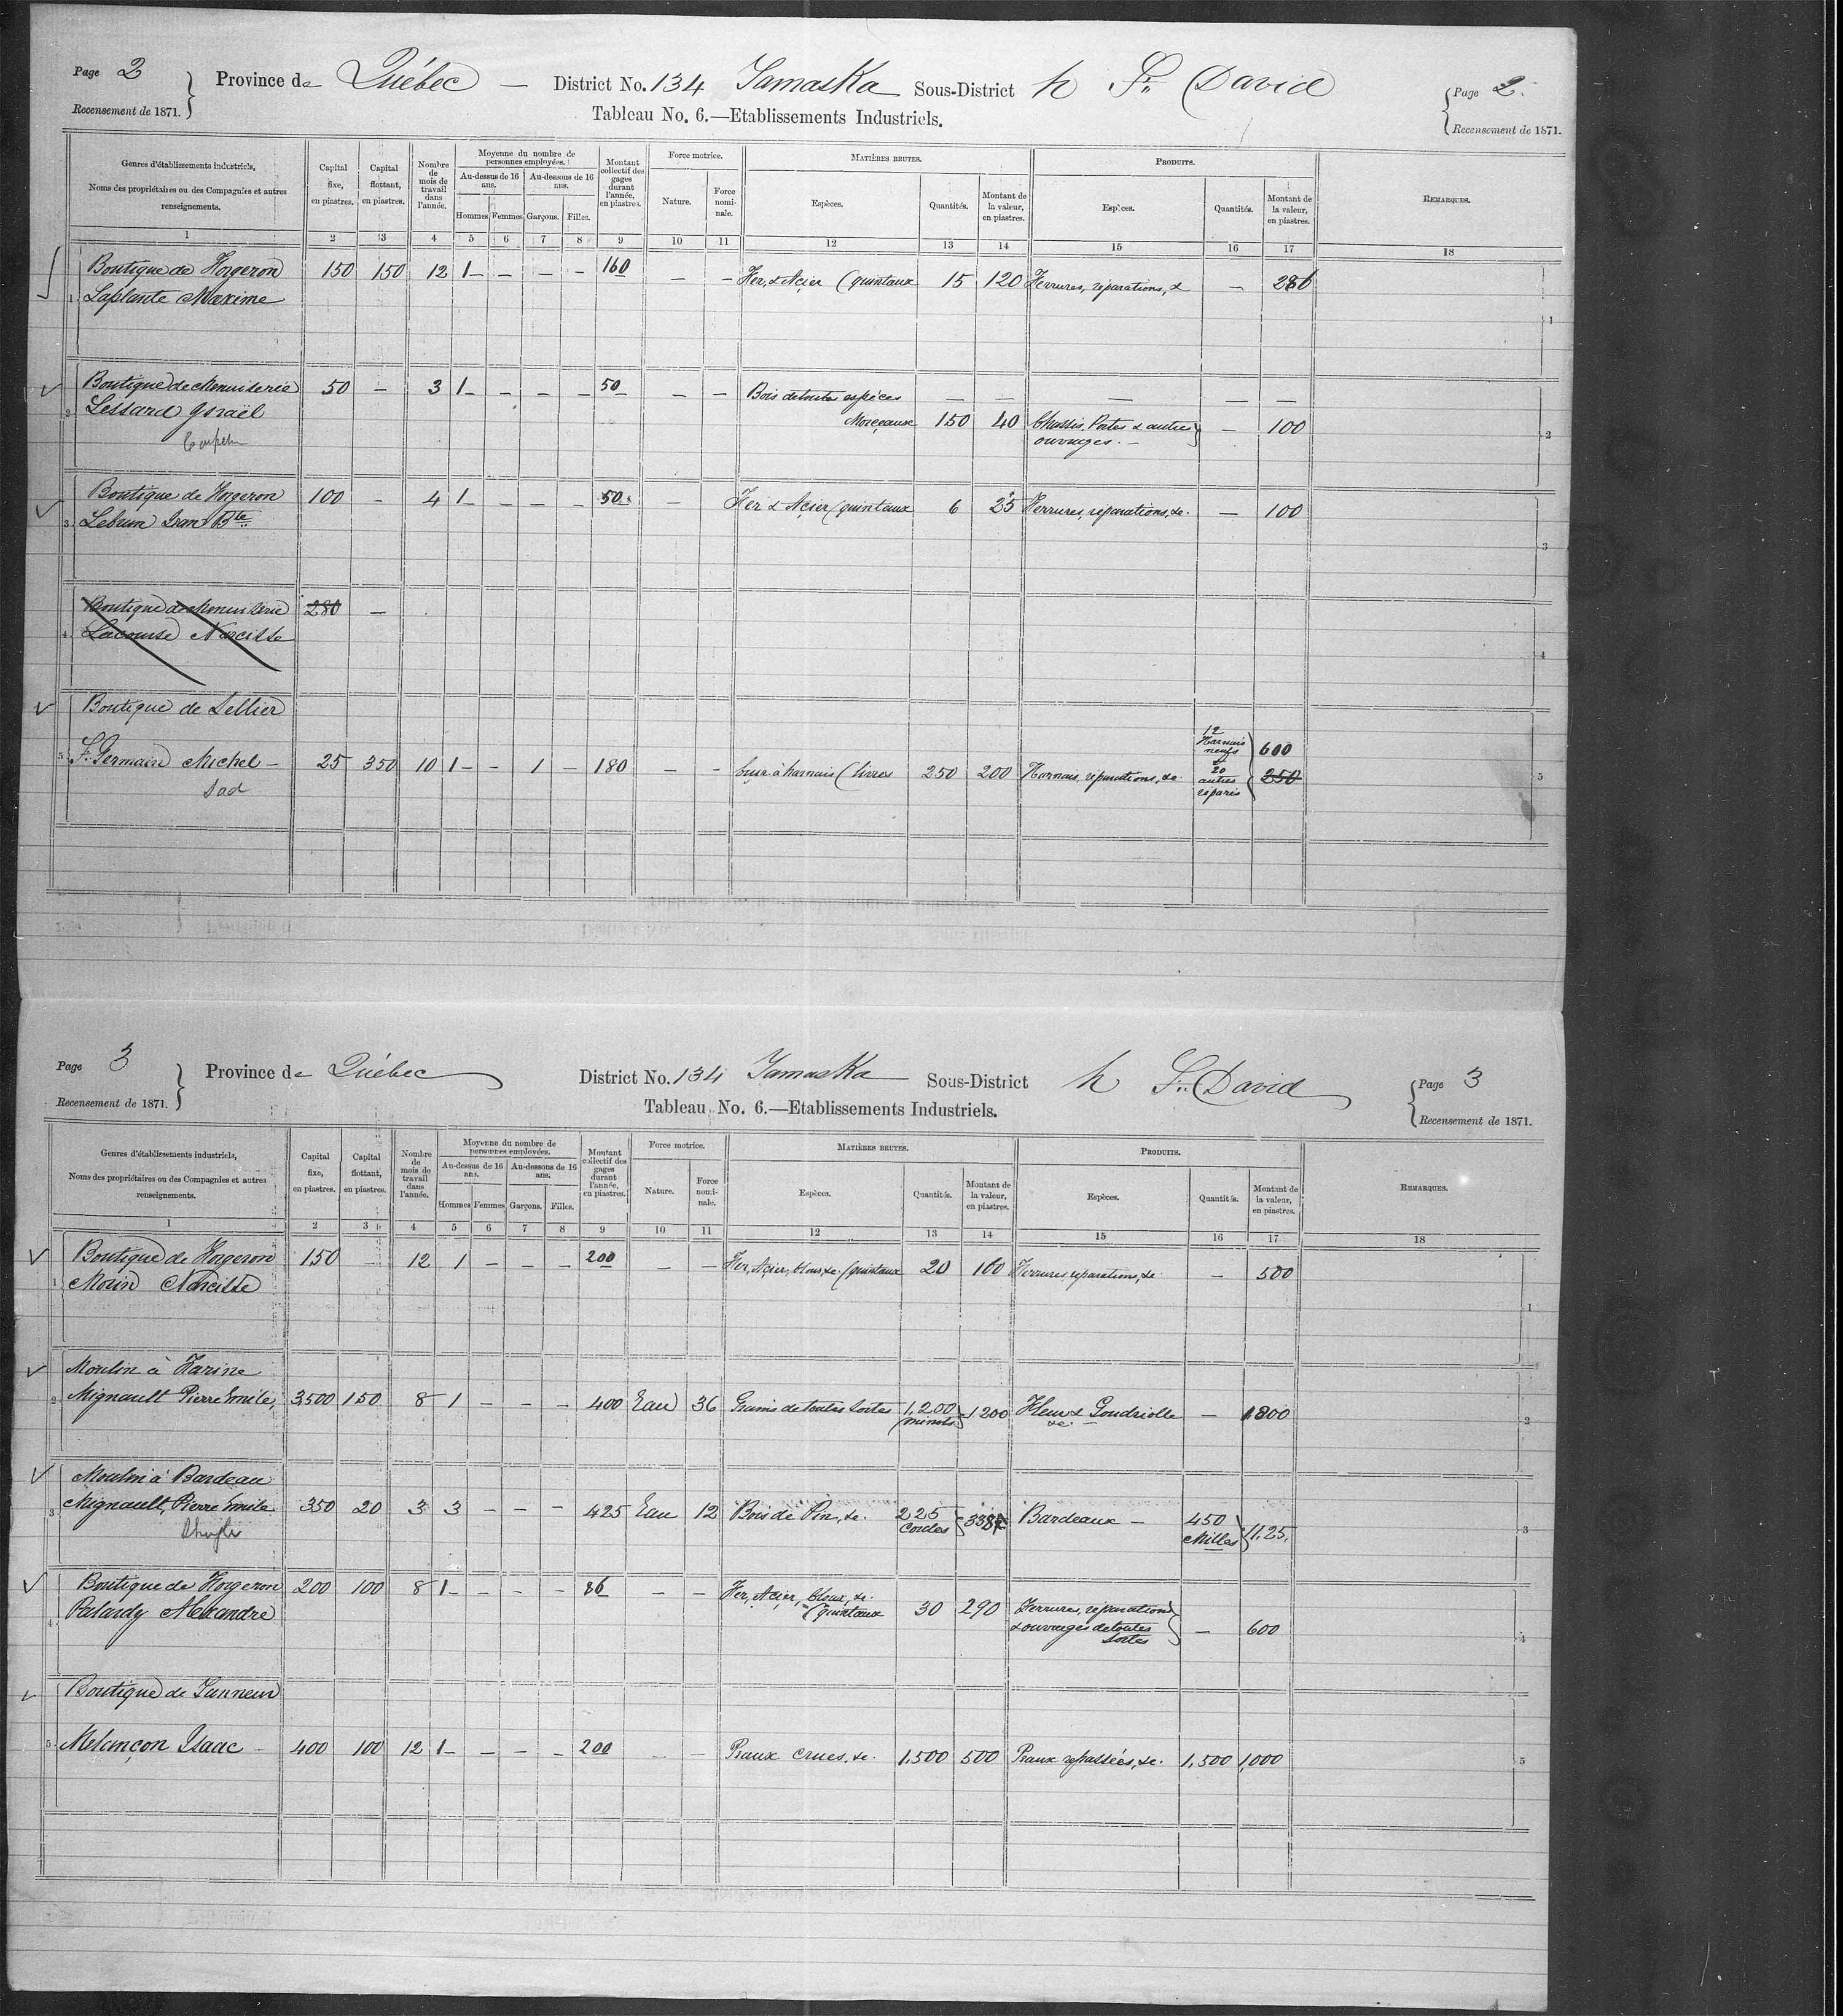 Page 2 } Province de Québec — District No. 134 Yamaska Sous-District h St. David { Page 2.
Recensement de 1871. Tableau No. 6.—Etablissements Industriels. Recensement de 1871.
Genres d'établissements industriels, Noms des propriétaires ou des Compagnies et autres renseignements.
Capital fixe, en piastres.
Capital flottant, en piastres.
Nombre de mois de travail dans l'année.
Moyenne du nombre de personnes employées.
Au-dessus de 16 ans.
Au-dessous de 16 ans.
Hommes Femmes Garçons. Filles.
Montant collectif des gages durant l'année, en piastres.
Force motrice.
Nature.
Force nominale.
MATIÈRES BRUTES.
Espèces.
Quantités.
Montant de la valeur, en piastres.
PRODUITS.
Espèces.
Quantités.
Montant de la valeur, en piastres.
REMARQUES.
1 2 3 4 5 6 7 8 9 10 11 12 13 14 15 16 17 18
Boutique de Forgeron 150 150 12 1 — — — — 160 — — Fer, & Acier (quintaux 15 120 Ferrures, réparations, & —
1 Laplante Maxime 1
Boutique de Menuiserie 50 — 3 1 — — — — 50 — — Bois de toutes espèces — — — — —
2 Lessard Israël Morceaux 150 40 Chassis, Portes & autres ouvrages. — } — 100 2
Boutique de Forgeron 100 — 4 1 — — — — 50 — Fer & Acier (quintaux 6 25 Ferrures, réparations, &c. — 100
3 Lebrun Jean Bte 3
Boutique de Menuiserie 280 —
4 Lacourse Narcisse 4
Boutique de Sellier
5 St. Germain Michel — 25 350 10 1 — — 1 — 180 — — Cuir à harnais (livres 250 200 Harnais, réparations, &c. 12 Harnais neufs & 20 autres réparés } 600 250 5
Sad
Page 3 } Province de Québec District No. 134 Yamaska Sous-District h St. David { Page 3
Recensement de 1871. Tableau No. 6.—Etablissements Industriels. Recensement de 1871.
Genres d'établissements industriels, Noms des propriétaires ou des Compagnies et autres renseignements.
Capital fixe, en piastres.
Capital flottant, en piastres.
Nombre de mois de travail dans l'année.
Moyenne du nombre de personnes employées.
Au-dessus de 16 ans.
Au-dessous de 16 ans.
Hommes Femmes Garçons. Filles.
Montant collectif des gages durant l'année, en piastres.
Force motrice.
Nature.
Force nominale.
MATIÈRES BRUTES.
Espèces.
Quantités.
Montant de la valeur, en piastres.
PRODUITS.
Espèces.
Quantités.
Montant de la valeur, en piastres.
REMARQUES.
1 2 3 4 5 6 7 8 9 10 11 12 13 14 15 16 17 18
Boutique de Forgeron 150 — 12 1 — — — — 200 — — Fer, Acier, clous, &c. (quintaux 20 160 Ferrures réparations, &c. — 500
1 Morin Narcisse 1
Moulin à Farine
2 Mignault Pierre Emile, 3,500 150 8 1 — — — 400 Eau 36 Grains de toutes sortes 1,200 (minots } 1200 Fleur & Goudriolle &c. — 1800 2
Moulin à Bardeau
3 Mignault, Pierre Emile 350 20 3 3 — — — 425 Eau 12 Bois de Pin, &c. 225 Cordes } Bardeaux — 450 Milles } 11.25. 3
Shingles
Boutique de Forgeron 200 100 8 1 — — — — 86 — — Fer, Acier, clous, &c. (quintaux 30 290 Ferrures, réparations & ouvrages de toutes sortes } — 600
4 Palardy Alexandre 4
Boutique de Tanneur
5 Melançon Isaac — 400 100 12 1 — — — — 200 — — Peaux crues, &c. 1,500 500 Peaux repassées, &c. 1,500 1,000 5